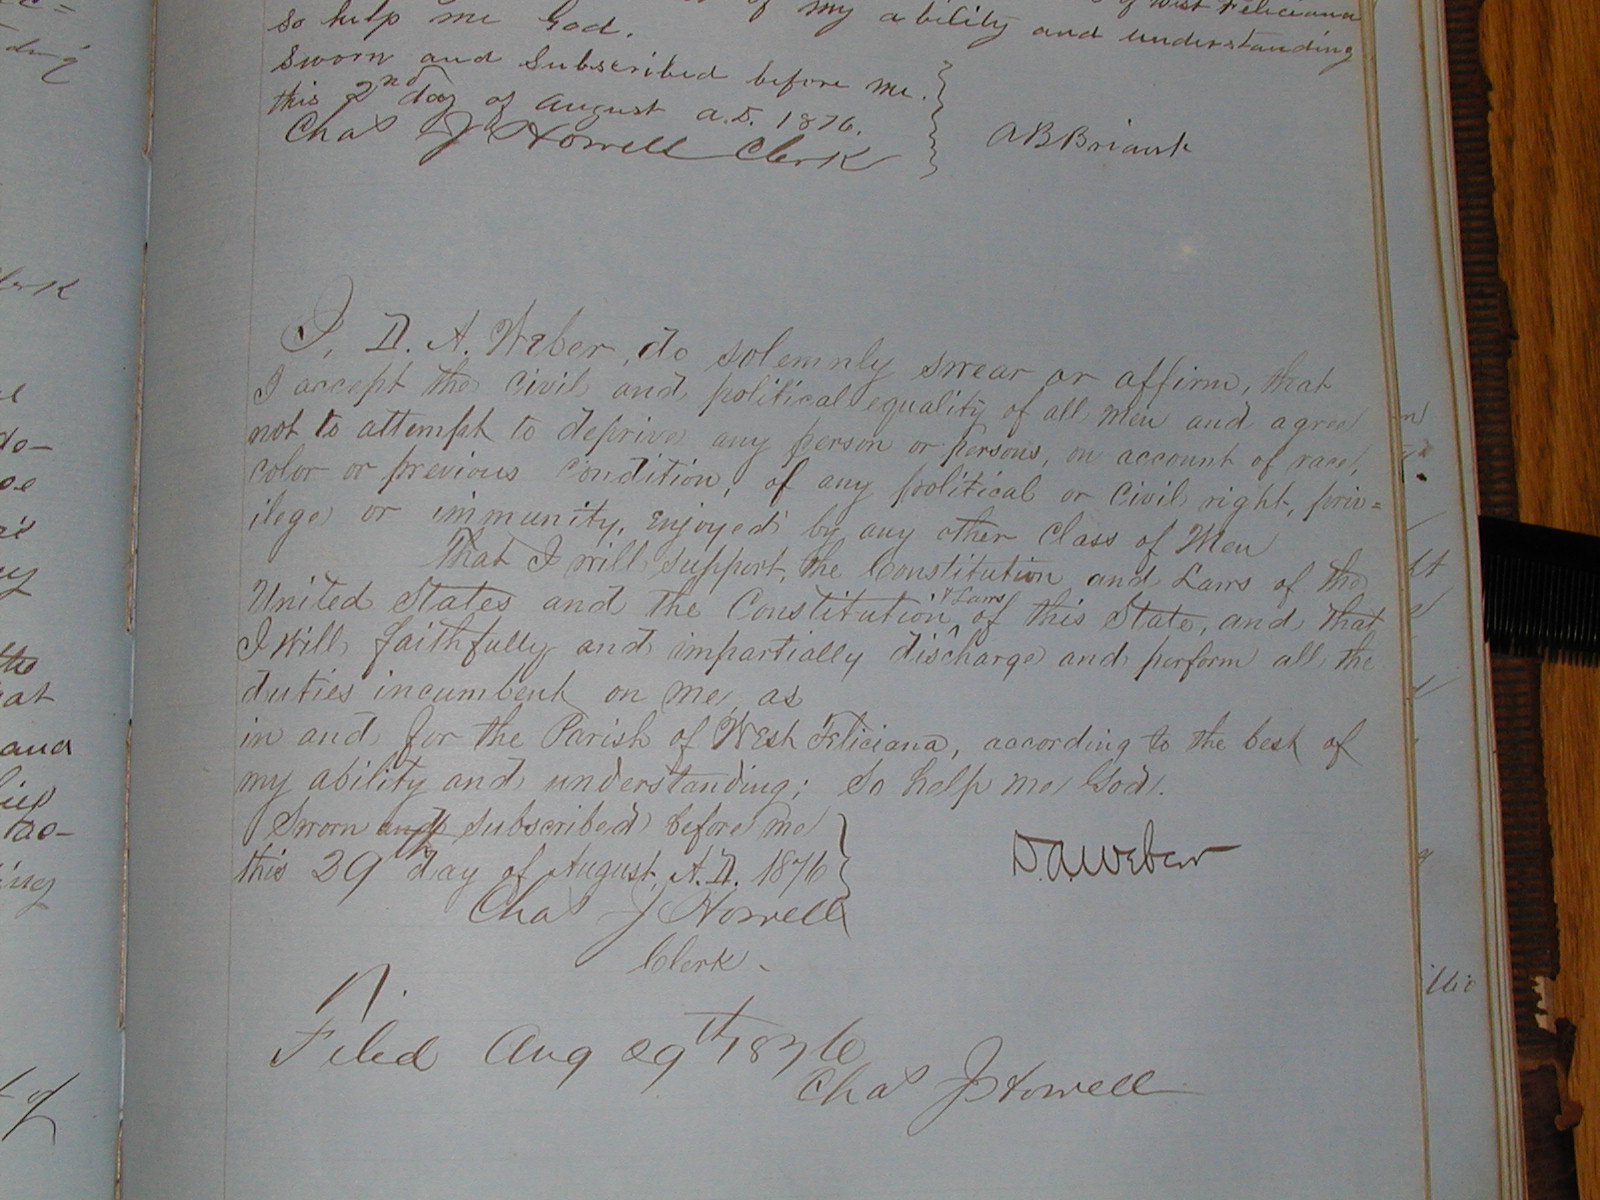 of my ability and understanding
of West Feliciana
so help me God.
Sworn and Subscribed before me.
this 2nd day of August A.D. 1876.
Chas J Howell Clerk
A B Briant
I, D. A. Weber, do solemnly swear or affirm, that
I accept the Civil and political equality of all Men and agree
not to attempt to deprive any person or persons, on account of race,
color or previous condition, of any political or Civil right, priv=
ilege or immunity, enjoyed by any other Class of Men
That I will support, the Constitution and Laws of the
United States and the Constitution & Laws of this State, and that
I Will faithfully and impartially discharge and perform all the
duties incumbent on me, as
in and for the Parish of West Feliciana, according to the best of
my ability and understanding; So help me God.
Sworn and subscribed before me
this 29 day of August, A.D. 1876
Chas J Howell
Clerk.
D. A. Weber
Filed Aug 29th 1876
Chas J Howell